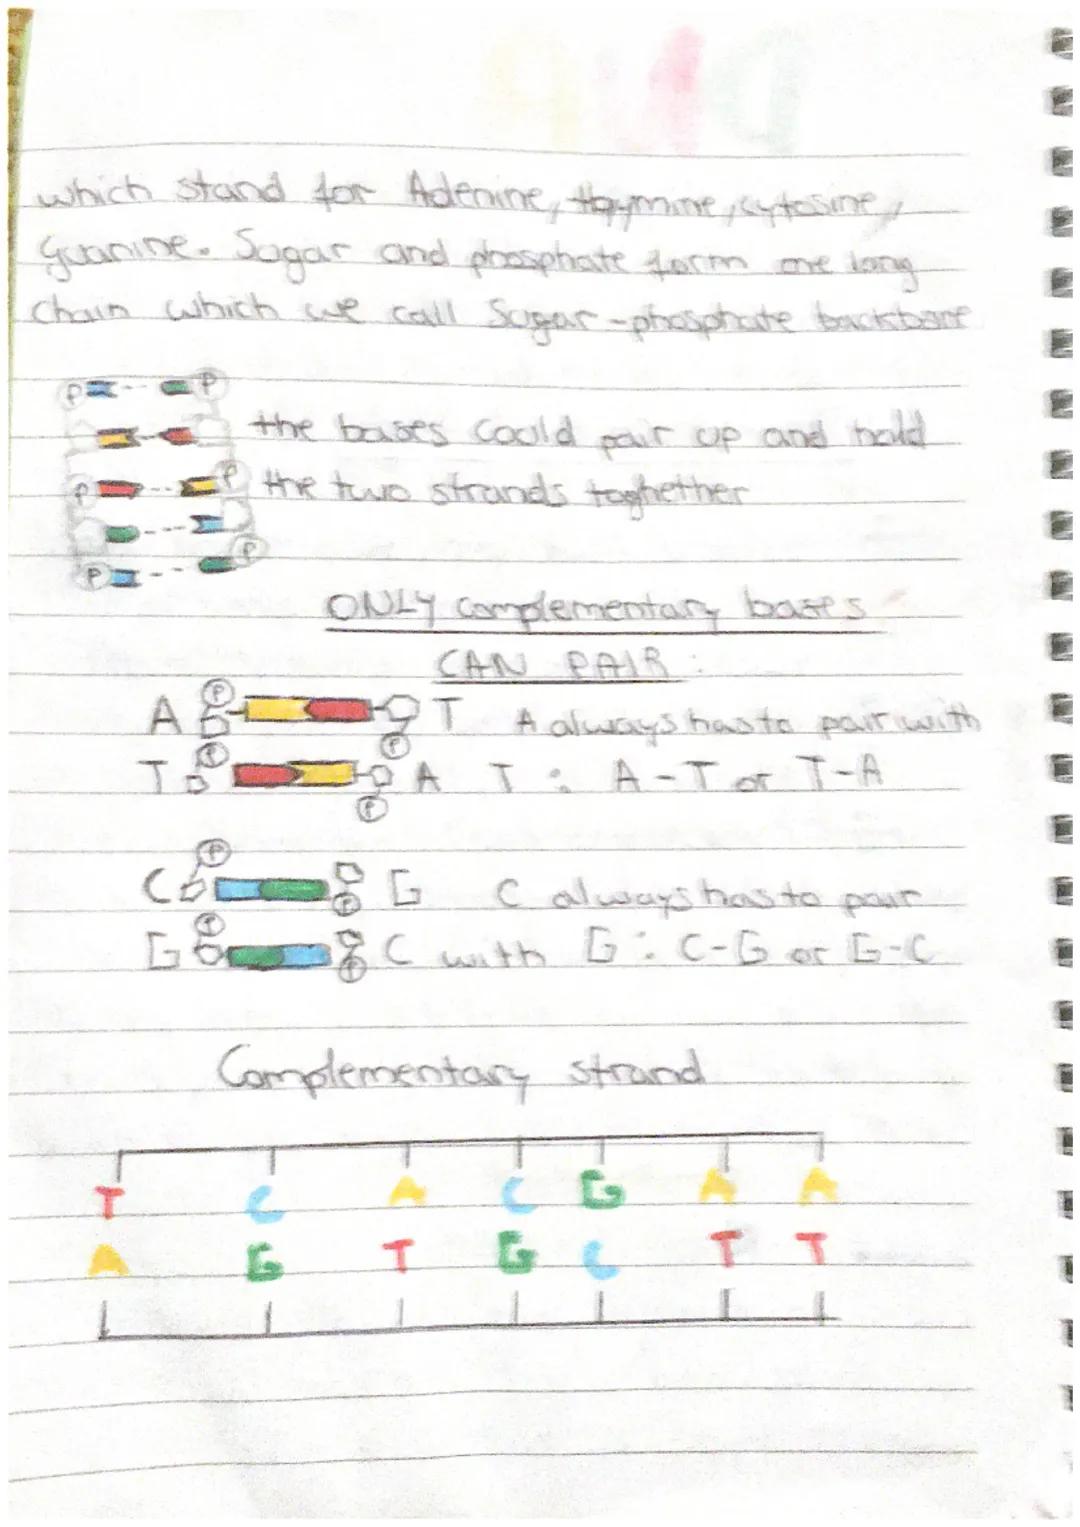 which stand for Adenine, thymine, cytosine,
Guanine. Sugar and phosphate form one long
chain which we call Sugar-phosphate backbone
P P
the bases could pair up and hold
P P the two strands toghether
P P
ONLY complementary bases
CAN PAIR:
A P T A always has to pair with
P
T P A T : A-T or T-A
P
P
C G C always has to pair
P
P
G C with G : C-G or G-C
P
Complementary strand
T C A C G A A
A G T G C T T